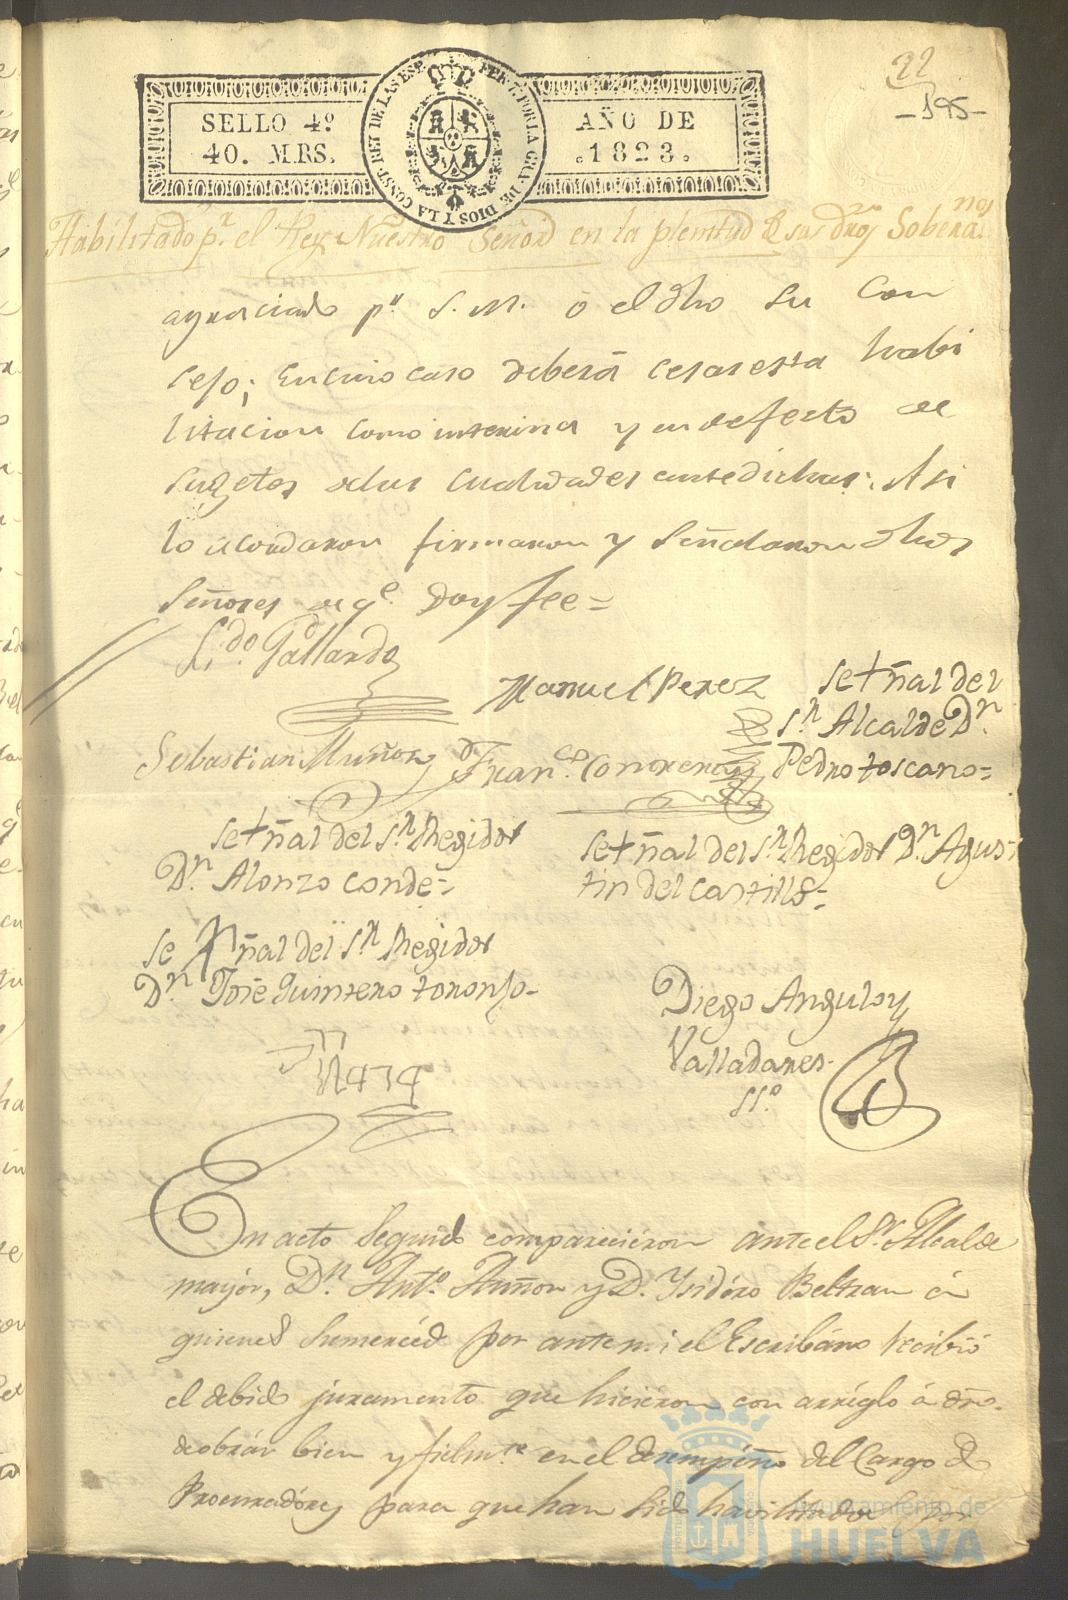 22
-195-
SELLO 4º
40. MRS.
AÑO DE
.1823.
POR LA GRA. DE DIOS Y LA CONST. REY DE LAS ESP.
Habilitado pr. el Rey Nuestro Señor en la plenitud de sus dros Soberanos
agraciado pr. S. M. ó el dho su Con
sejo; En cuio caso deberá cesar esta habi
litacion como interina y en defecto de
sugetos de las cualidades antedichas: Asi
lo acordaron firmaron y Señalaron dhos
Señores de qe. Doy fee=
L.do Gallardo
Manuel Perez
Se+ñal del
Sr. Alcalde Dn.
Pedro toscano=
Sebastian Muñoz
Franco. Contreras
Se+ñal del Sr. Regidor
Dn. Alonzo Conde=
Se+ñal del Sr. Regidor Dn. Agus-
tin del Castillo=
Se ñal del Sr. Regidor
Dn. José Quintero toronjo-
Diego Angulo y
Valladares
SSo.
En acto seguido comparecieron ante el Sr. Alcalde
mayor, Dn. Anto. Muñoz y D. Ysidóro Beltran á
quienes Sumerced por ante mi el Escribano recibió
el debido juramento que hicieron con arréglo á dro.
de obrár bien y fielmte. en el desempeño del Cargo de
Procuradóres para que han sido havilitados por
Ayuntamiento de
HUELVA